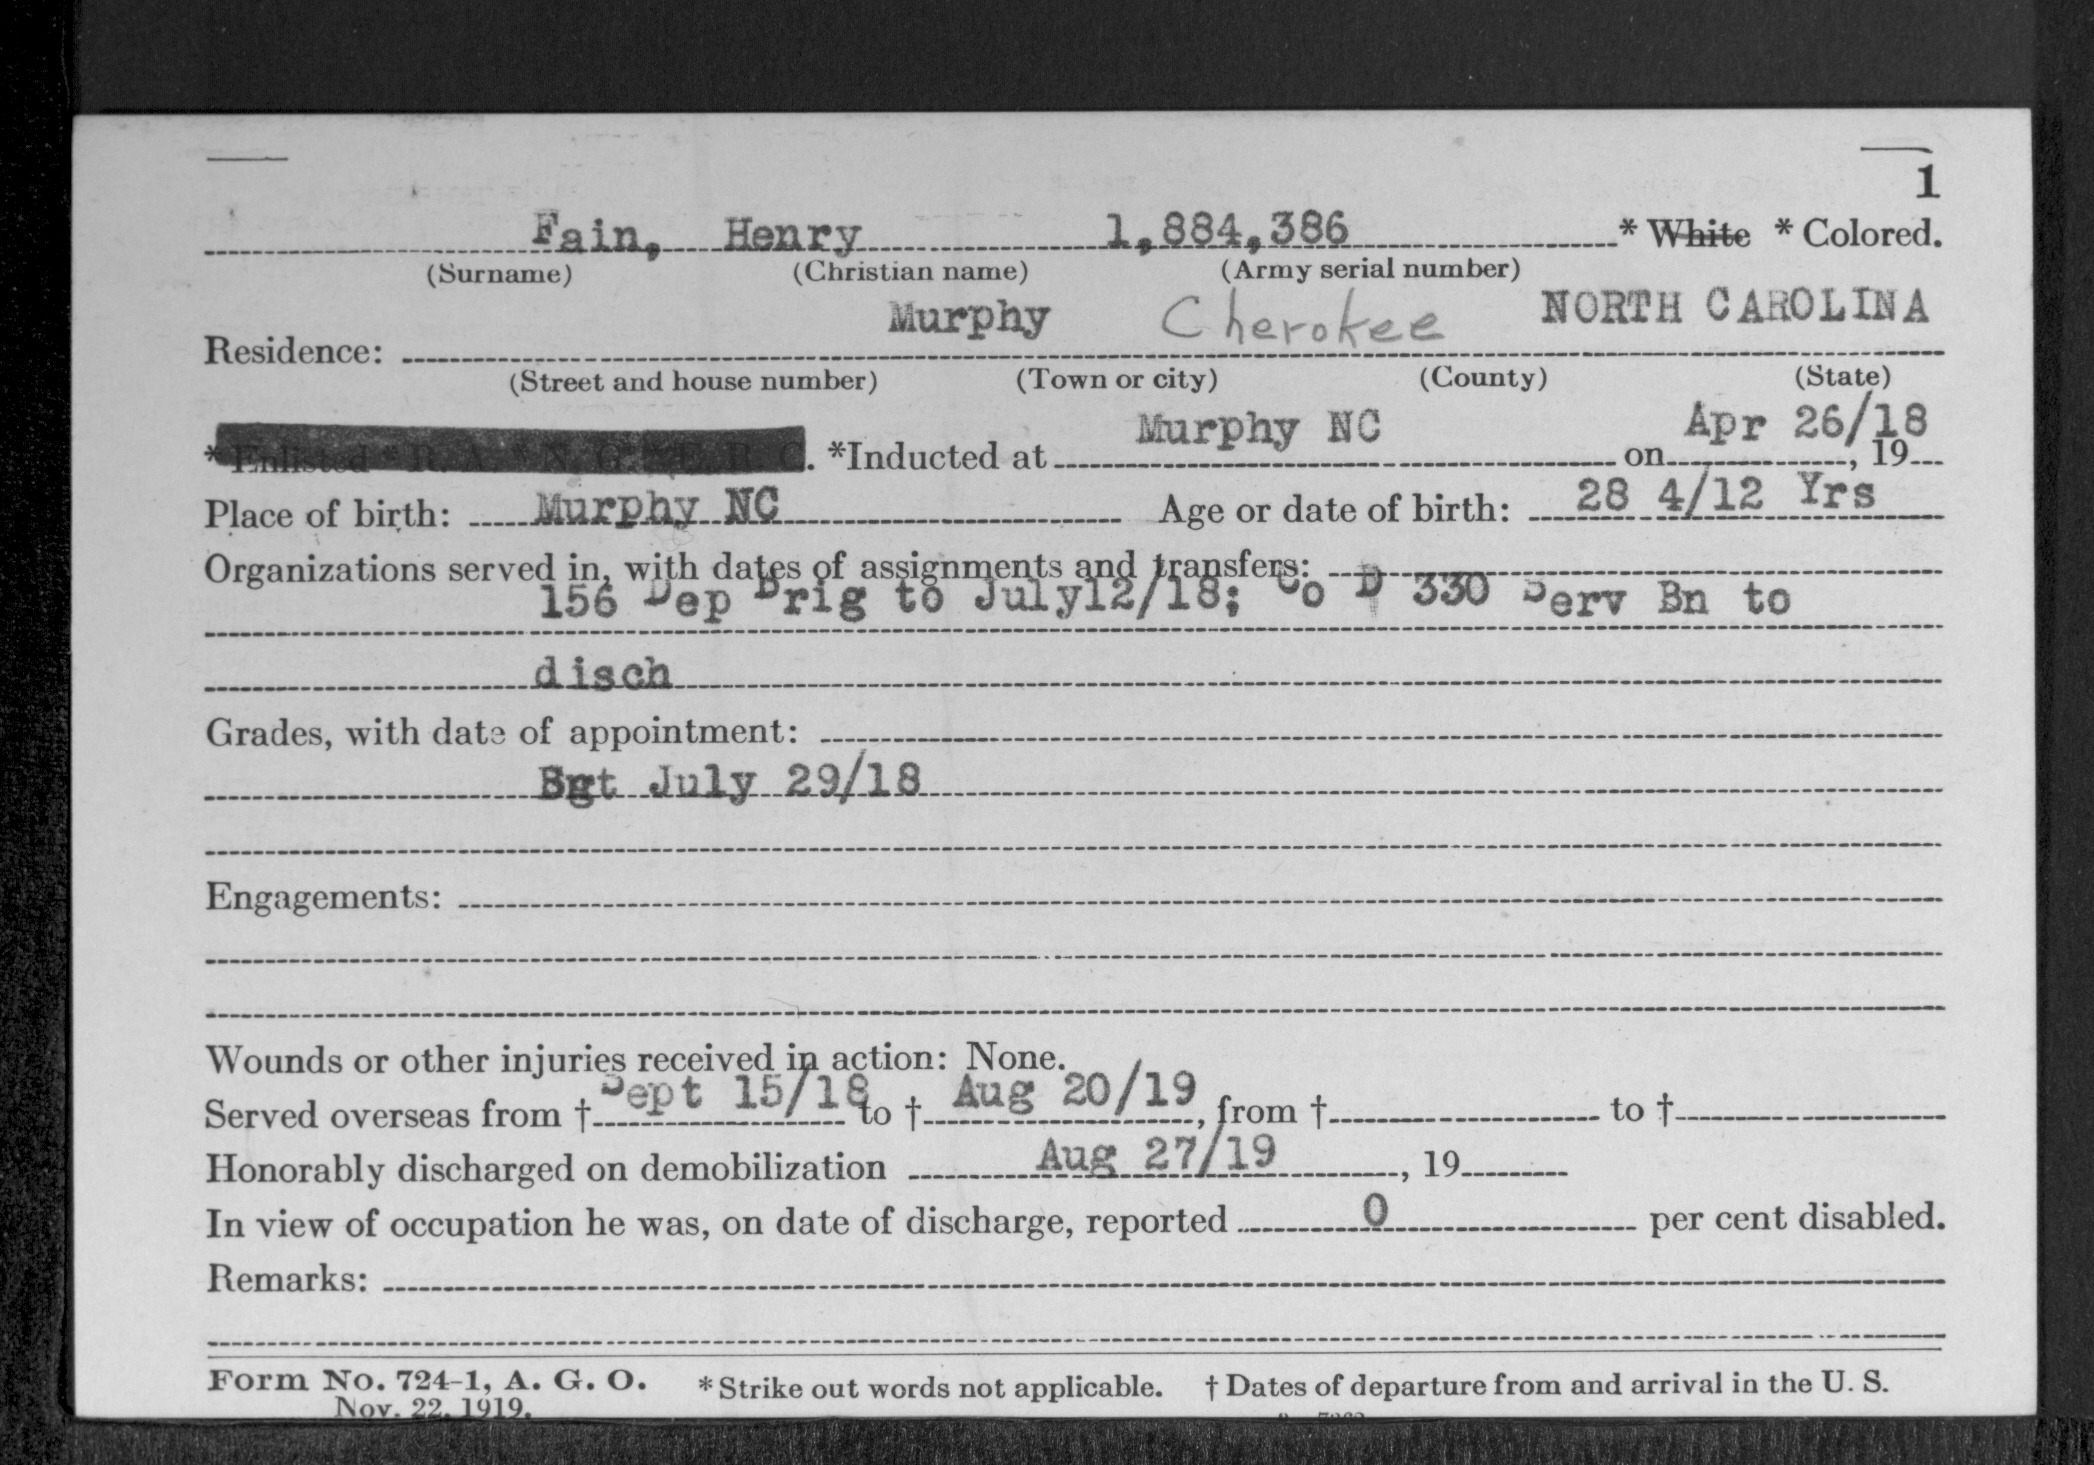 1
Fain, Henry 1,884,386 * White * Colored.
(Surname) (Christian name) (Army serial number)
Murphy Cherokee NORTH CAROLINA
Residence:
(Street and house number) (Town or city) (County) (State)
Murphy NC Apr 26/18
* Enlisted * R. A. * N. G. * E. R. C. *Inducted at on , 19
Place of birth: Murphy NC Age or date of birth: 28 4/12 Yrs
Organizations served in, with dates of assignments and transfers:
156 Dep Brig to July12/18; Co D 330 Serv Bn to
disch
Grades, with date of appointment:
Sgt July 29/18
Engagements:
Wounds or other injuries received in action: None.
Served overseas from † Sept 15/18 to † Aug 20/19, from † to †
Honorably discharged on demobilization Aug 27/19, 19
In view of occupation he was, on date of discharge, reported 0 per cent disabled.
Remarks:
Form No. 724-1, A. G. O. * Strike out words not applicable. † Dates of departure from and arrival in the U. S.
Nov. 22, 1919.